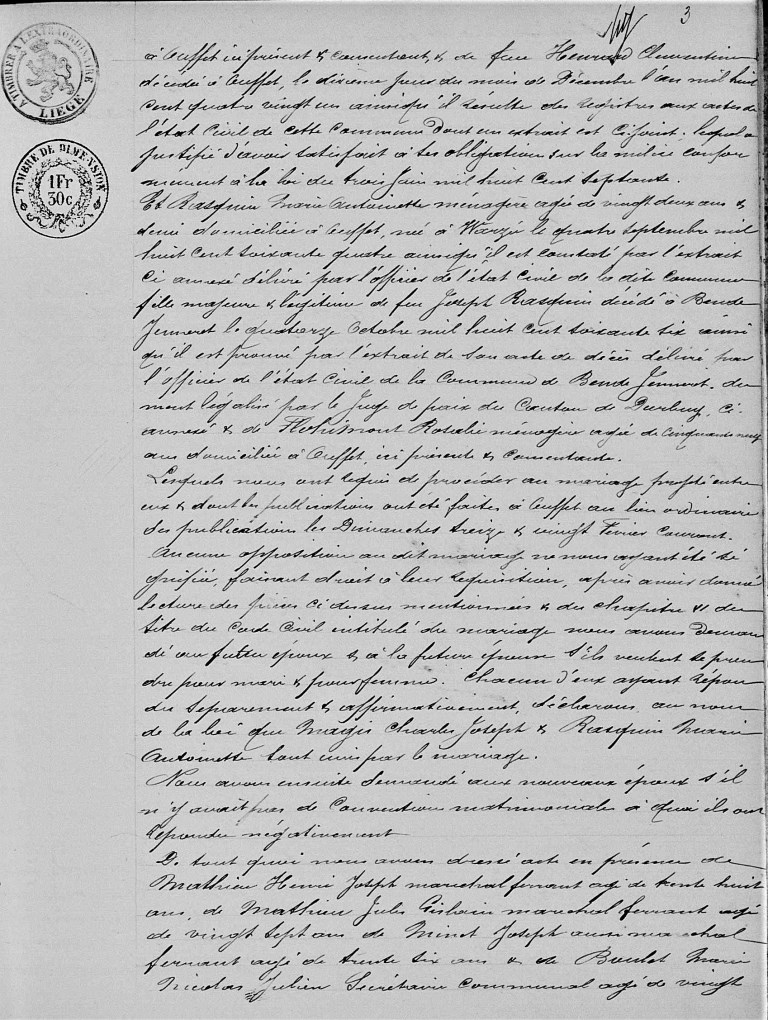 3
A TIMBRER A L'EXTRAORDINAIRE
LIEGE
TIMBRE DE DIMENSION
1 Fr
30 c
à Ouffet ici présent & consentant, & de feue Henrard Clementine
décédée à Ouffet, le dixième jour du mois de Décembre l'an mil huit
cent quatre vingt un ainsi qu'il résulte des registres aux actes de
l'état Civil de cette Commune dont un extrait est Ci-joint, lequel a
justifié d'avoir satisfait à ses obligations sur la milice confor
mément à la loi du trois Juin mil huit Cent septante.
Et Rasquin Marie Antoinette ménagère agée de vingt deux ans &
demi domiciliée à Ouffet, née à Warzée le quatre septembre mil
huit cent soixante quatre ainsi qu'il est constaté par l'extrait
ci annexé délivré par l'officier de l'état Civil de la dite Commune
fille majeure & légitime de feu Joseph Rasquin décédé à Bende
Jenneret le quatorze Octobre mil huit cent soixante six ainsi
qu'il est prouvé par l'extrait de son acte de décès délivré par
l'officier de l'état Civil de la Commune de Bende Jenneret. du
ment légalisé par le Juge de paix du Canton de Durbuy, ci-
annexé & de Flohimont Rosalie ménagère agée de Cinquante neuf
ans domiciliée à Ouffet, ici présente & Consentante.
Lesquels nous ont requis de procéder au mariage projeté entre
eux & dont les publications ont été faites à Ouffet au lieu ordinaire
des publications les Dimanches treize & vingt Février Courant.
Aucune opposition au dit mariage ne nous ayant été si
gnifiée, faisant droit à leur réquisition, après avoir donné
lecture des pièces ci dessus mentionnées & du chapitre VI du
titre du Code Civil intitulé du mariage nous avons deman
dé au futur époux & à la future épouse s'ils veulent se pren
dre pour mari & pour femme. Chacun d'eux ayant répon
du séparement & affirmativement, déclarons, au nom
de la loi que Magis Charles Joseph & Rasquin Marie
Antoinette sont unis par le mariage.
Nous avons ensuite demandé aux nouveaux époux s'il
n'y avait pas de Convention matrimoniale à quoi ils ont
répondu négativement
De tout quoi nous avons dressé acte en présence de
Mathieu Henri Joseph marechal ferrant agé de trente huit
ans, de Mathieu Jules Gislain marechal ferrant agé
de vingt sept ans de Minet Joseph aussi marechal
ferrant agé de trente six ans & de Boulet Marie
Nicolas Julien Secrétaire Communal agé de vingt